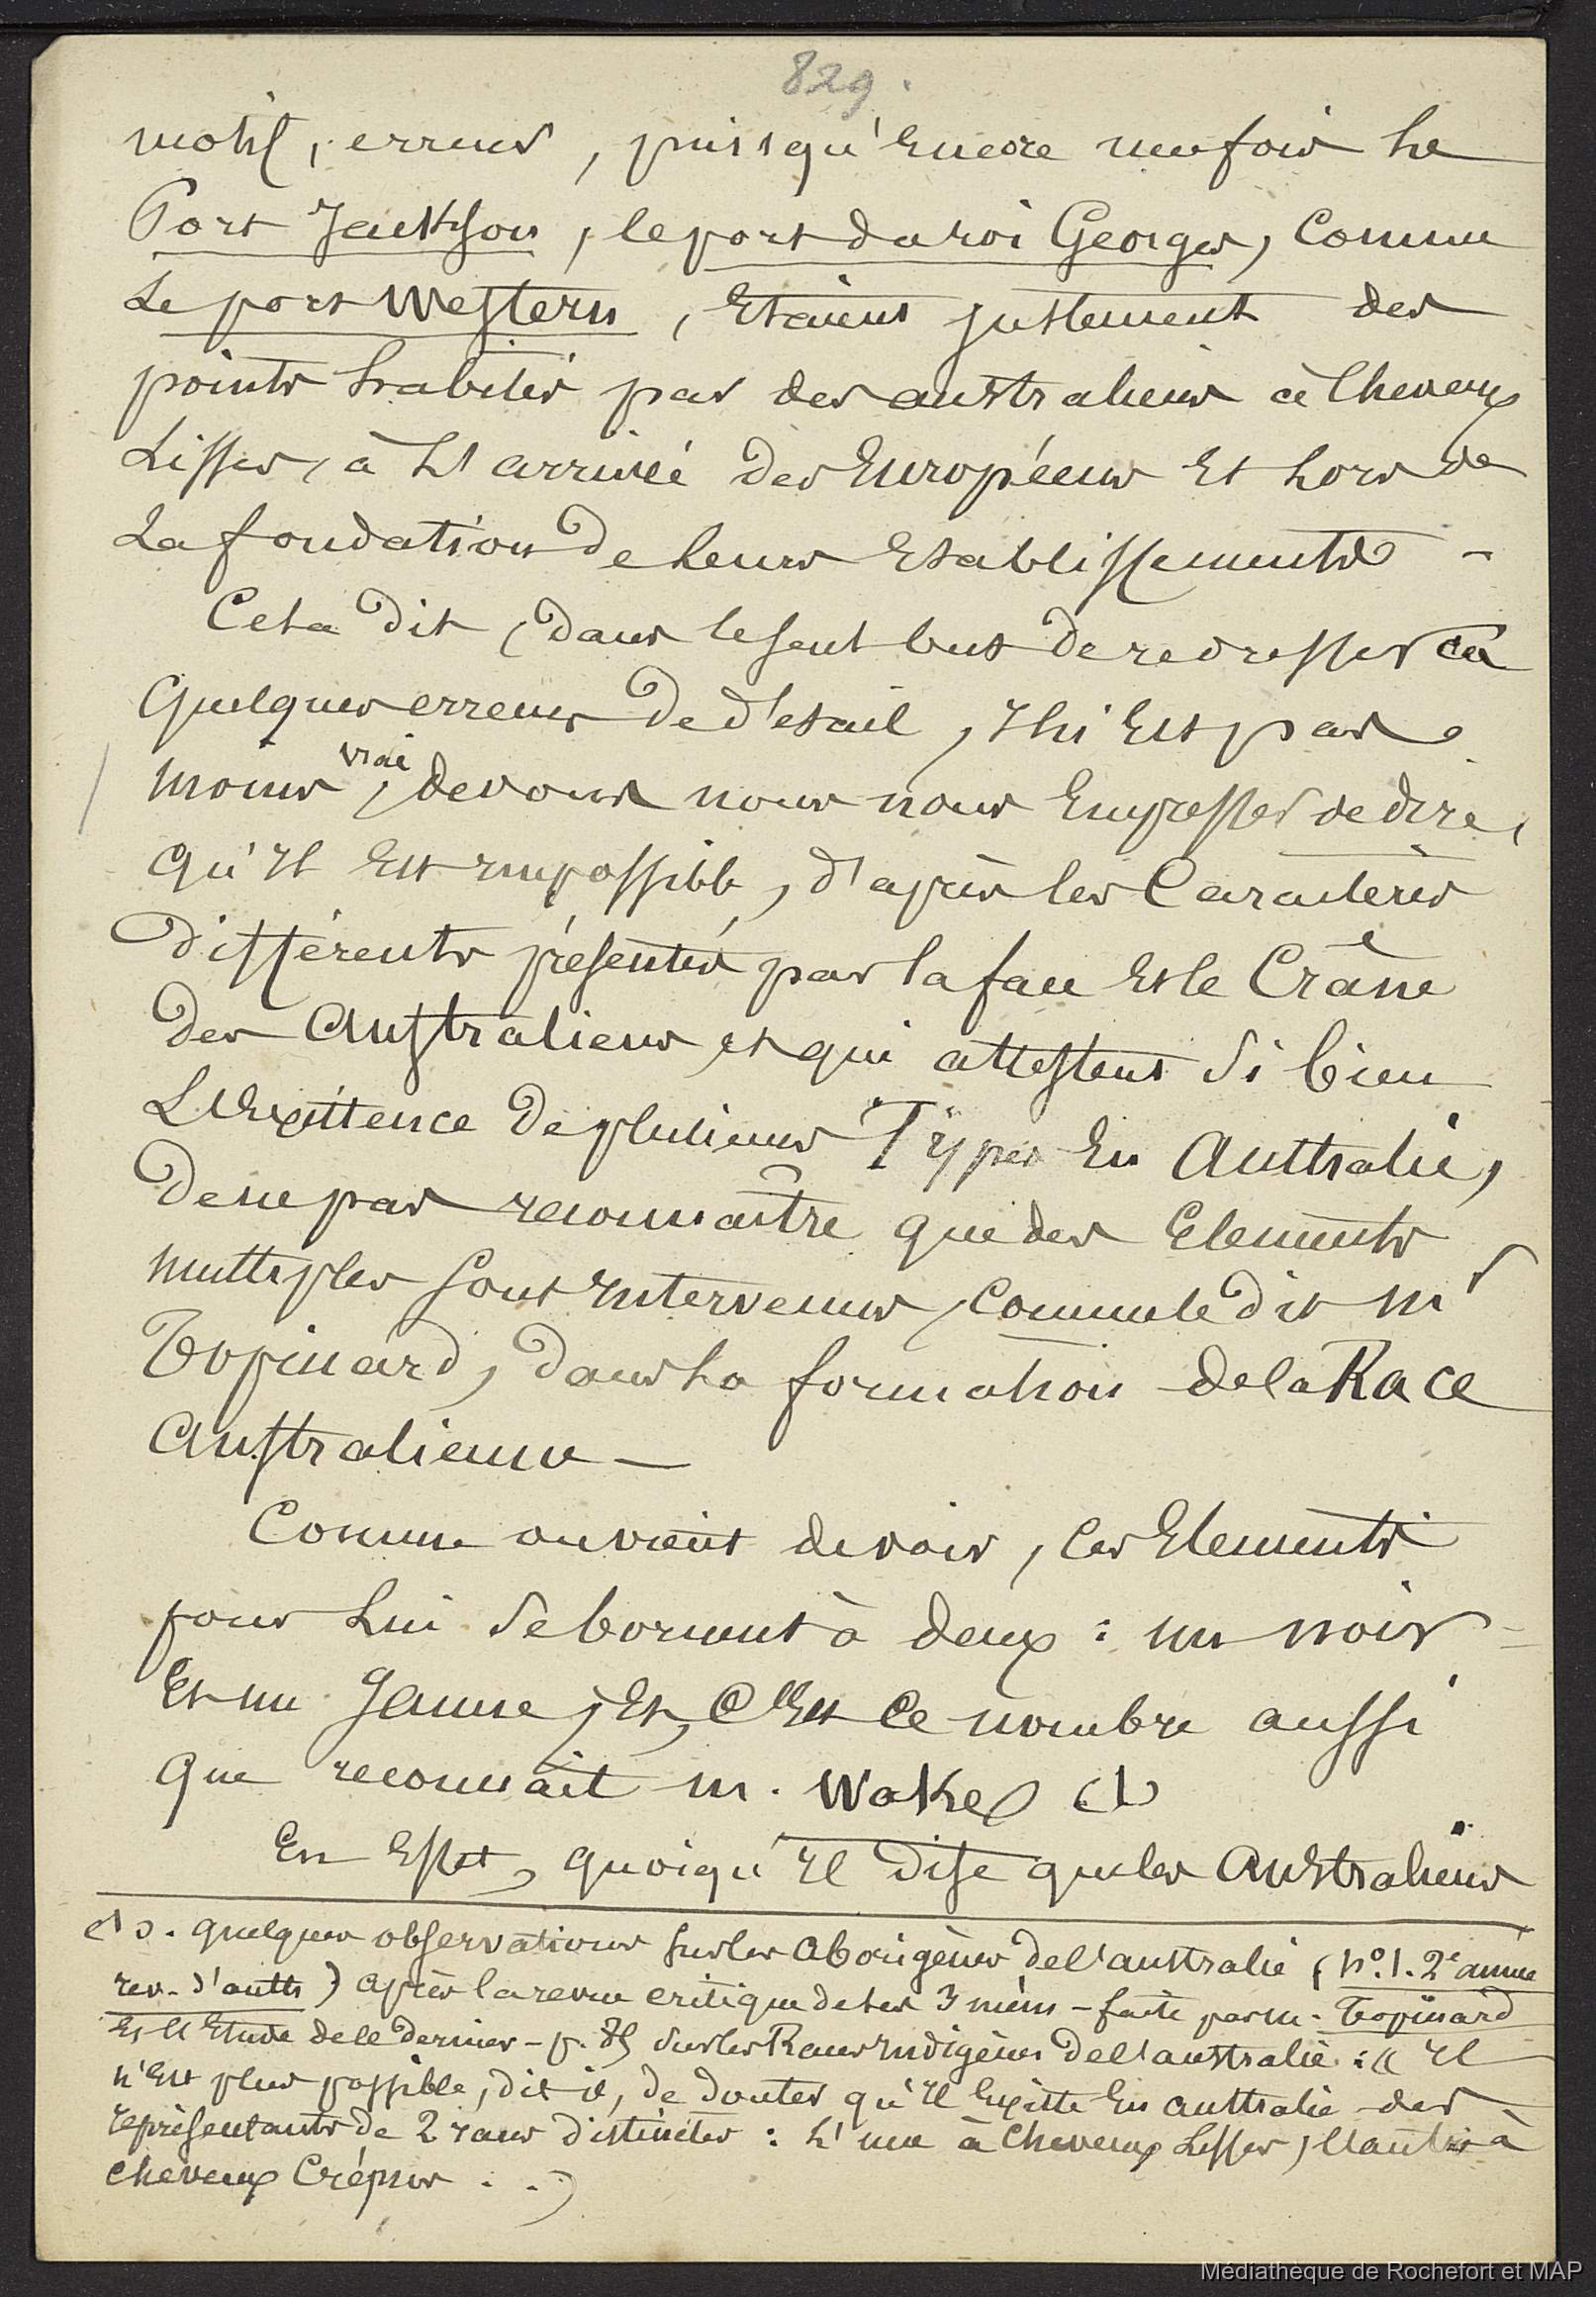 829.
motif, erreur, puisqu'encore une fois le
Port Jackson, le port du roi Georges, Comme
Le port Western, Etaient justement des
points habités par des australiens à Cheveux
Lisses, à l'arrivée des Européens Et lors de
La fondation de leurs Etablissements -
Cela dit, dans le seul but de redresser
quelques erreurs de détail, Il n'Est pas
moins vrai, devons nous nous Empresser de dire,
qu'Il Est Impossible, d'après les Caractères
différents présentés par la face Et le Crâne
des Australiens et qui attestent si bien
L'Existence de plusieurs Types En Australie,
de ne pas reconnaître que des Elements
multiples sont Intervenus, Comme le dit Mr
Topinard, dans la formation de la Race
Australienne —
Comme on vient de voir, Ces Elements
pour Lui se bornent à deux : un noir
Et un Jaune, Et, C'Est Ce nombre aussi
que reconnaît m. Wake (1)
En Effet, quoiqu'Il dise que les Australiens
(1). quelques observations sur les Aborigènes de l'australie (no. 1. 2e année
rev. d'anth) après la revue critique de ses 3 mém - faite par m. Topinard
Et l'Etude de ce dernier - p. sur les Races Indigènes de l'australie : « Il
n'Est plus possible, dit il, de douter qu'Il Existe En australie des
représentants de 2 races distinctes : L'une à Cheveux Lisses, l'autre à
cheveux Crépus . . )
Médiathèque de Rochefort et MAP